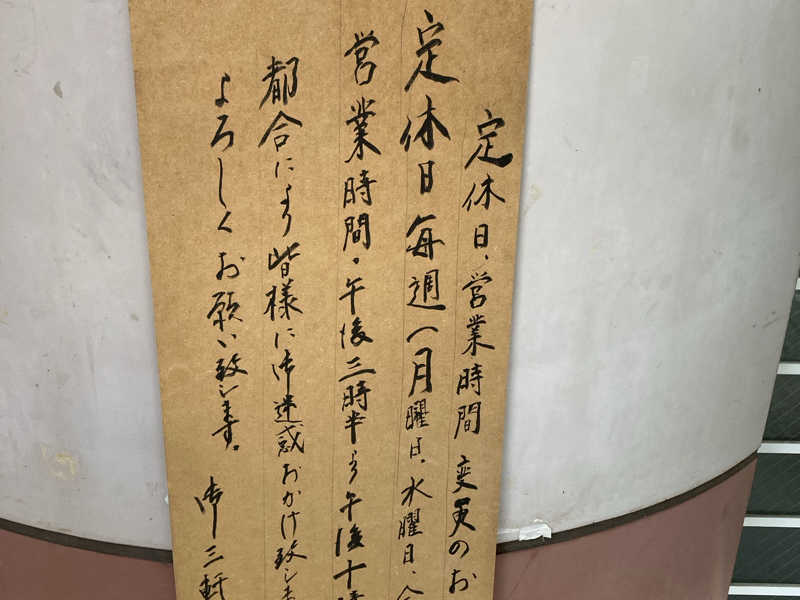 定休日、営業時間 変更のお
定休日 毎週(月曜日、水曜日、
営業時間・午後三時半より午後十時
都合により皆様に御迷惑おかけ致しま
よろしくお願い致します。
御三軒